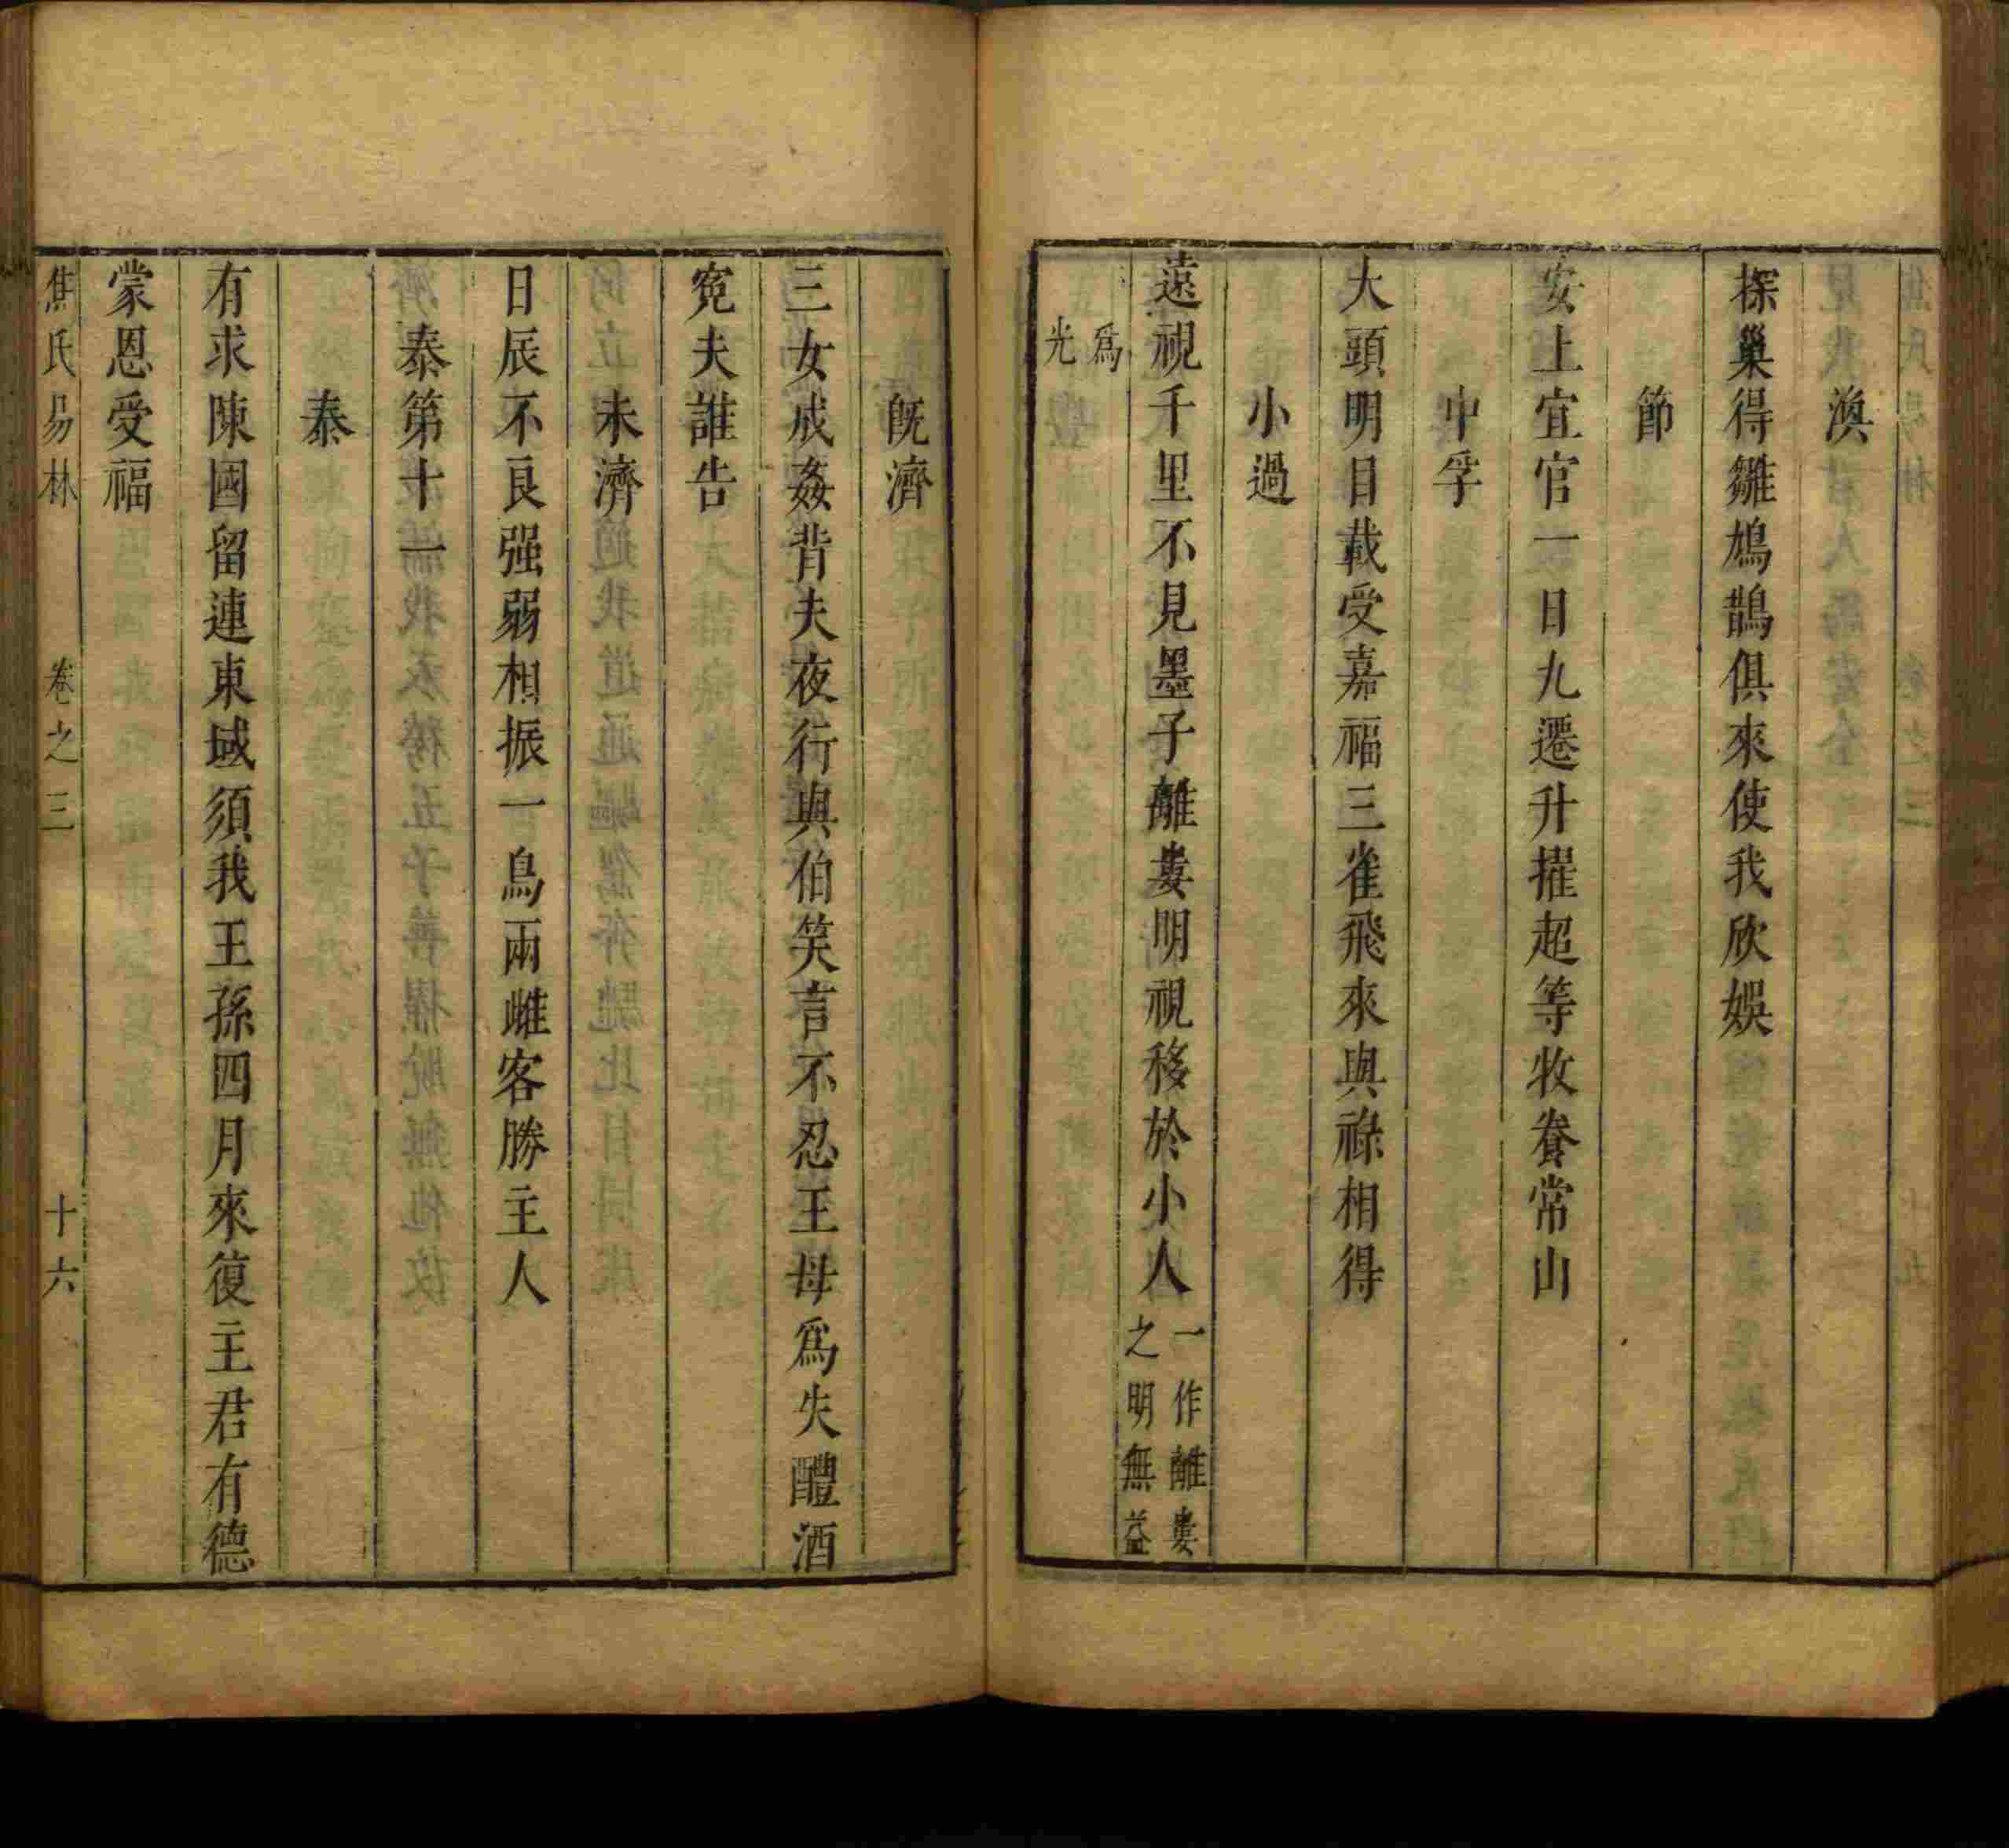 渙
探巢得雛鳩鵲俱來使我欣娛
節
安上宜官一日九遷升擢超等牧養常山
中孚
大頭明目載受嘉福三雀飛來與祿相得
小過
遠視千里不見墨子離婁明視移於小人一作離婁之明無益
爲光
旣濟
三女成姦背夫夜行與伯笑言不忍王母爲失醴酒
寃夫誰告
未濟
日辰不良强弱相振一鳥兩雌客勝主人
泰第十一
泰
有求陳國留連東域須我王孫四月來復主君有德
蒙恩受福
焦氏易林 卷之三 十六